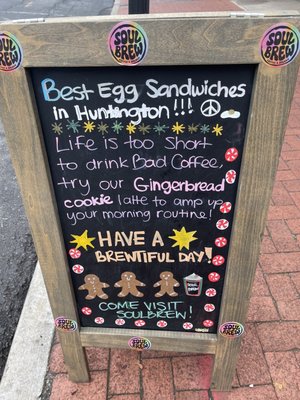 SOUL
BREW
SOUL
BREW
SOUL
BREW
Best Egg Sandwiches
in Huntington!!!
Life is too Short
to drink Bad Coffee,
try our Gingerbread
cookie latte to amp up
your morning routine!
HAVE A
BRENTIFUL DAY!
COME VISIT
SOULBREW!
SOUL
BREW
SOUL
BREW
SOUL
BREW